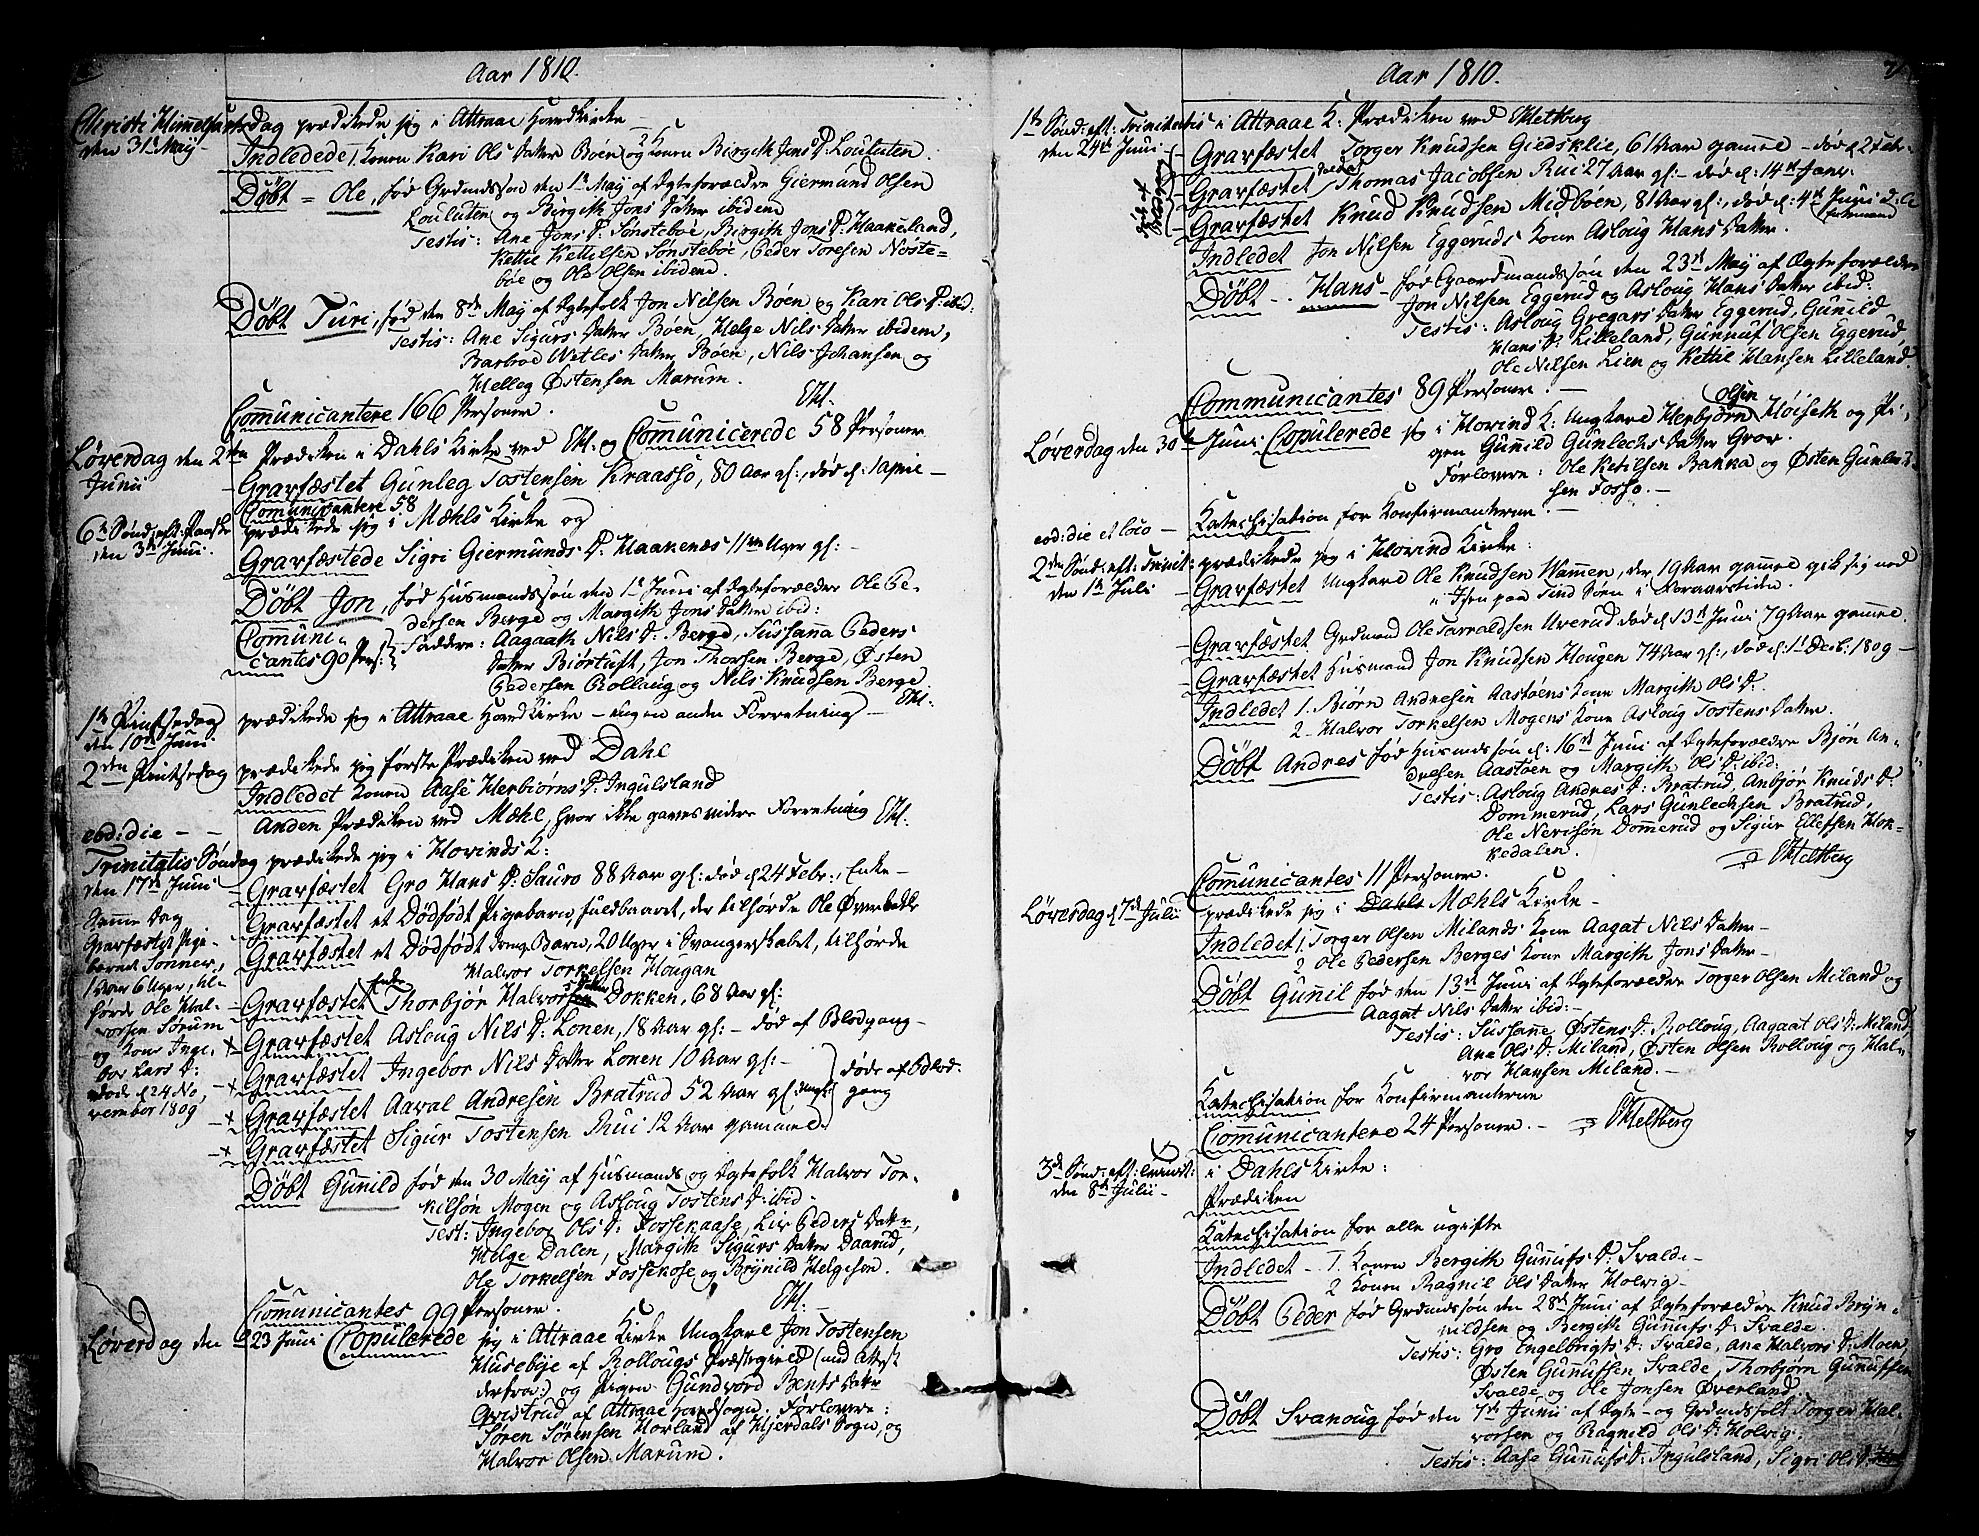 Aar 1810.
Christi Himmelfartsdag prædikede jeg i Attraae Hovedkirke —
den 31te May
Indledede, Konen Kari Ols Datter Böen og Konen Birgith Jons D. Louluten.
Döbt = Ole, fød Grdmandssøn den 1te May af Ægteforældre Giermund Olsen
Louluten og Birgith Jons Datter ibidem
Testis: Ane Jons D: Sönsteböe, Birgith Jons D: Haakeland,
Kettil Kettilsen Sönsteböe, Peder Toresen Nöste-
böe og Ole Olsen ibidem.
Döbt Turi, fød den 8de May af Ægtefolk Jon Nilsen Böen og Kari Ols D: ibid:
Testis: Ane Sigurs Datter Böen, Helge Nils Datter ibidem,
Barboe Wetles Datter Böen, Nils Johansen og
Helleg Østensen Marum.
Communicantere 166 Personer.
Løverdag den 2den Prædiken i Dahls Kirke ved og Communicerede 58 Personer
Junii
Gravfæstet Gunleg Tostensen Kraasso, 80 Aar gl:, død d: 1 April —
Communicantere 58
6te Sönd: eft: Paaske prædikede jeg i Mæhls Kirke og
den 3die Junii.
Gravfæstede Sigri Giermunds D: Haakenæs 11 Uger gl: —
Döbt Jon, fød Husmandssøn den 1te Junii af Ægteforældre Ole Pe-
dersen Berge og Margith Jons Datter ibid:
Communi-
cantes 90 Pers:
Faddere: Aagaath Nils D: Berge, Sussanna Peders
Datter Biörtuft, Jon Thorsen Berge, Østen
Pedersen Rolloug og Nils Knudsen Berge.
1te Pintsedag prædikede jeg i Attraae Hovedkirke — ingen anden Forretning —
den 10de Junii
2den Pintsedag prædikede jeg første Prædiken ved Dahl
Indledet Konen Aase Herbiörns D: Ingulsland
Anden Prædiken ved Mæhl, hvor ikke gaves videre Forretning
eod: die — —
Trinitatis Söndag prædikede jeg i Hovinds K:
den 17de Junii
Gravfæstet Gro Hans D: Sauro 88 Aar gl: død d 24 Febr:, Enke —
Samme Dag
Gravfæstet Pige-
barnet Sönner,
1 Aar 6 Uger, til-
hørde Ole Hal-
vorsen Sörum
og Kone Inge-
bor Lars D:
døde d 24 No-
vember 1809
Gravfæstet et Dødfødt Pigebarn, fuldbaaret, der tilhørde Ole Øverbekke
Gravfæstet et Dødfødt Drenge Barn, 20 Uger i Svangerskabet, tilhørde
Halvor Torkelsen Hougan
Gravfæstet Enke Thorbjör Halvors Datter Dokken, 68 Aar gl:
Gravfæstet Asloug Nils D: Lonen, 18 Aar gl: — død af Blodgang —
Gravfæstet Ingebor Nils Datter Lonen 10 Aar gl: —
Gravfæstet Aaval Andresen Bratrud 52 Aar gl:
døde af Blod-
gang
Gravfæstet Sigur Tostensen Rui 12 Aar gammel
Döbt Gunild fød den 30 May af Husmands og Ægtefolk Halvor Tor-
kilsön Mogen og Asloug Tostens D: ibid.
Test: Ingebor Ols D: Fossekaase, Liv Peders Datter,
Helge Dalen, Margith Sigurs Datter Daarud,
Ole Torkelsen Fossekose og Brynild Helgeson.
Communicantes 99 Personer.
Løverdag den 23 Junii Copulerede jeg i Attraae Kirke Ungkarl Jon Tostensen
Husebÿe af Rollougs Præstegield (med Attest
derfra) og Pigen Gundvord Bents Datter
Qvistrud af Attraae Hovedsogn. Forlovere:
Sören Sörensen Horland af Hjerdals Sogn, og
Halvor Olsen Marum.
Aar 1810.
1te Sönd: eft: Trinitatis i Attraae K: Prædiken ved
den 24de Junii
død af
Blodgang
Gravfæstet Torger Knudsen Giedsklie, 61 Aar gammel — død d 2 Febr.
Gravfæstet Thomas Jacobsen Rui 27 Aar gl: — død d: 14de Janr.
Gravfæstet Knud Knudsen Midböen, 81 Aar gl:, død d: 4de Junii
Indledet Jon Nilsen Eggeruds Kone Asloug Hans Datter.
Döbt — Hans — fød Gaardmandssøn den 23de May af Ægteforældre
Jon Nilsen Eggerud og Asloug Hans Datter ibid:
Testis: Asloug Gregars Datter Eggerud, Gunild
Hans D: Lilleland, Gunnuf Olsen Eggerud,
Ole Nilsen Lien og Kettil Hansen Lilleland.
Communicantes 89 Personer. —
Løverdag den 30te Junii Copulerede jeg i Hovind K: Ungkarl Herbjörn Olsen Höiseth og Pi-
gen Gunnild Gunlechs Datter Grov.
Forlovere: Ole Ketilsen Bakka og Østen Gunlech-
sen Fosso. —
eod: die et loco — Katechisation for Konfirmanterne. —
2den Sönd: eft: Trinit: prædikede jeg i Hovind Kirke:
den 1te Julii
Gravfæstet Ungkarl Ole Knudsen Wammen, der 19 Aar gammel gik sig ned
i Isen paa Tind Söen i Foraarstiden.
Gravfæstet Grdmand Ole Tarraldsen Urerud død d 13de Junii 79 Aar gammel.
Gravfæstet Husmand Jon Knudsen Hougen 74 Aar gl:, død d: 1te Decb: 1809 —
Indledet 1. Biörn Andresen Aastöens Kone Margith Ols D:
2. Halvor Torkelsen Mogens Kone Asloug Tostens Datter.
Döbt Andres fød Husmdssøn d: 16de Junii af Ægteforældre Bjön An-
dresen Aastöen og Margith Ols D: ibid:
Testis: Asloug Andres D: Bratrud, Anbjör Knuds D:
Dommerud, Lars Gunlechsen Bratrud,
Ole Nerisön Dommerud og Sigur Ellefsen Hok-
kedalen.
Communicantes 11 Personer.
Løverdag d 7de Julii prædikede jeg i Dahls Mæhls Kirke —
Indledet 1. Torger Olsen Milands Kone Aagat Nils Datter —
2 Ole Pedersen Berges Kone Margith Jons Datter —
Döbt Gunnil fød den 13de Junii af Ægteforældre Torger Olsen Miland og
Aagat Nils Datter ibid: —
Testis: Sussanne Østens D: Rolloug, Aagaat Ols D: Miland,
Ane Ols D: Miland, Østen Olsen Rolloug og Hal-
vor Hansen Miland. —
Katechisation for Konfirmanterne
Communicantere 24 Personer. —
3de Sönd: eft: Trinit: i Dahls Kirke:
den 8de Julii —
Prædiken
Katechisation for alle ugifte
Indledet — 1. Konen Bergith Gunnufs D: Svalde —
2 Konen Ragnil Ols Datter Holvig —
Döbt Peder fød Grdmdssøn den 28de Junii af Ægteforældre Knud Bryn-
nildsen og Bergith Gunnufs D: Svalde.
Testis: Gro Engelbrigts D: Svalde, Ane Halvors D: Moen,
Østen Gunnufsen Svalde, Thorbjørn Gunnufsen
Svalde og Ole Jonsen Øverland
Döbt Svanoug fød den 7de Junii af Ægte- og Grdmdsfolk Torger Hal-
vorsen og Ragnild Ols D: Holvig.
Testis: Aase Gunnufs D: Ingulsland, Sigri Ols D: